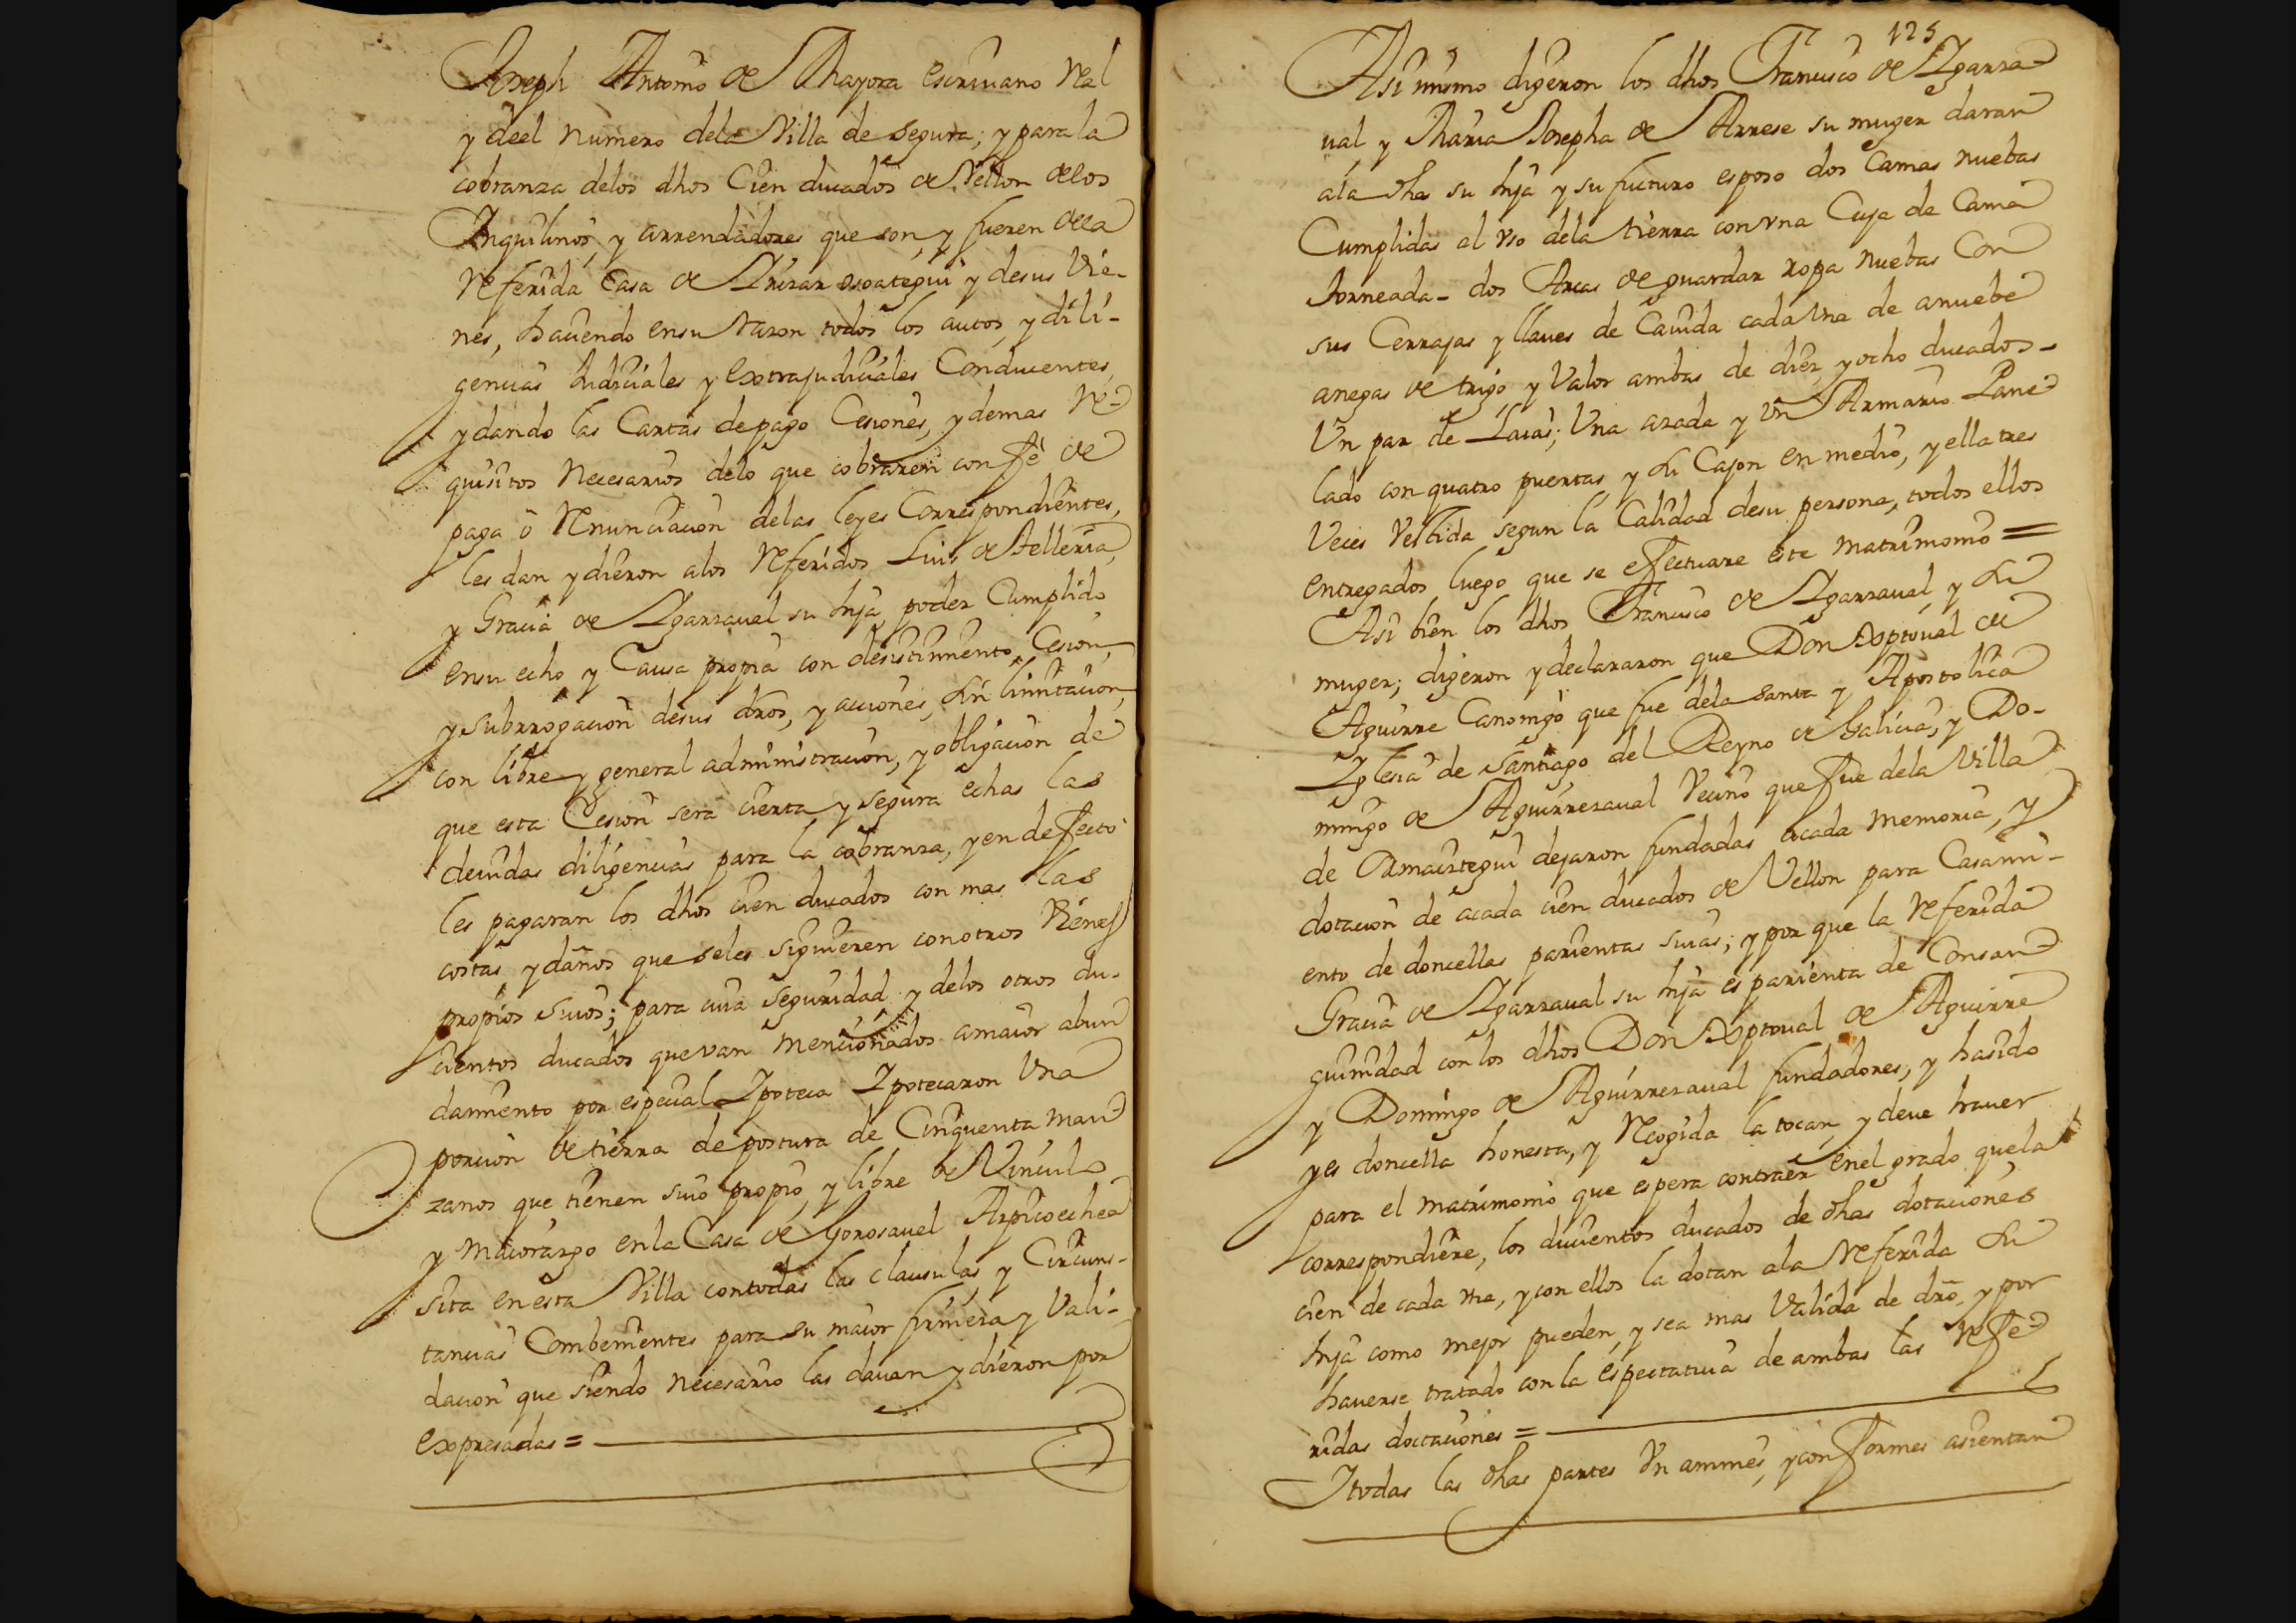 Joseph Antonio de Mayora escriuano Real
y deel numero dela Villa de Segura; y para la
cobranza delos dhos Cien ducados de Vellon delos
Inquilinos, y arrendadores que son, y fueren dela
Referida Casa de Yrizar y de sus Vie-
nes, haciendo en su razon todos los autos, y dili-
gencias Judiciales y Extrajudiciales Conducentes,
y dando las Cartas de pago Cesiones, y demas Re-
quisitos Necesarios delo que cobraren con fe de
paga ô Renunciacion delas leyes Correspondientes,
les dan y dieron alos Referidos Luis de Telleria,
y Gracia de Ygarzaual su hija poder Cumplido
en su echo y Causa propia con desistimiento, Cesion,
y subrrogacion de sus dros, y acciones, sin limitacion,
con libre y general administracion, y obligacion de
que esta Cesion sera cierta y segura echas las
deuidas diligencias para la cobranza, y en defecto
les pagaran los dhos cien ducados con mas las
costas y daños que se les siguieren con otros Vienes
propios suios; para cuia seguridad y delos otros du-
cientos ducados que van mencionados a maior abun
damiento por especial Ypoteca Ypotecaron Vna
porcion de tierra de postura de Cinquenta man
zanos que tienen suio propio, y libre de Vinculo
y maiorazgo en la Casa de Gorosauel Azpicoechea
sita en esta Villa con todas las clausulas, y Circuns-
tancias Combenientes para su maior firmeza y Vali-
dacion que siendo necesario las dauan y dieron por
Expresadas =
125
Asi mismo digeron los dhos Francisco de Ygarza
ual, y Maria Josepha de Arrese su muger daran
ala dha su hija y su futuro esposo dos Camas nuebas
Cumplidas al vso dela tierra con vna Cuja de Cama
torneada - dos Arcas de guardar ropa nuebas Con
sus Cerrajas y llaues de Cauida cada Vna de a nuebe
anegas de trigo y Valor ambas de diez y ocho ducados -
Vn par de Laias; Vna azada y Vn Armario Pane
lado con quatro puertas, y su Cajon en medio, y ella tres
Veces Vestida segun la Calidad de su persona, todos ellos
entregados luego que se efectuare este matrimonio =
Asi bien los dhos Francisco de Ygarzaual, y su
muger; digeron y declararon que Don Xptoual de
Aguirre Canonigo que fue dela Santa y Apostolica
Yglesia de Santiago del Reyno de Galicia, y Do-
mingo de Aguirrezaual Vecino que fue dela Villa
de Ormaiztegui dejaron fundadas acada memoria, y
dotacion de acada cien ducados de Vellon para Casami-
ento de doncellas parientas suias; y por que la Referida
Gracia de Ygarzaual su hija es parienta de Consan
guinidad con los dhos Don Xptoual de Aguirre
y Domingo de Aguirrezaual fundadores, y ha sido
y es doncella honesta, y Recogida la tocan, y deue hauer
para el matrimonio que espera contraer en el grado que la
correspondiere, los ducientos ducados de dhas dotaciones
cien de cada vna, y con ellos la dotan ala Referida su
hija como mejor pueden, y sea mas Valida de dro, y por
hauerse tratado con la espectatiua de ambas las Refe
ridas doctaciones =
Y todas las dhas partes Vn animes, y conformes asientan